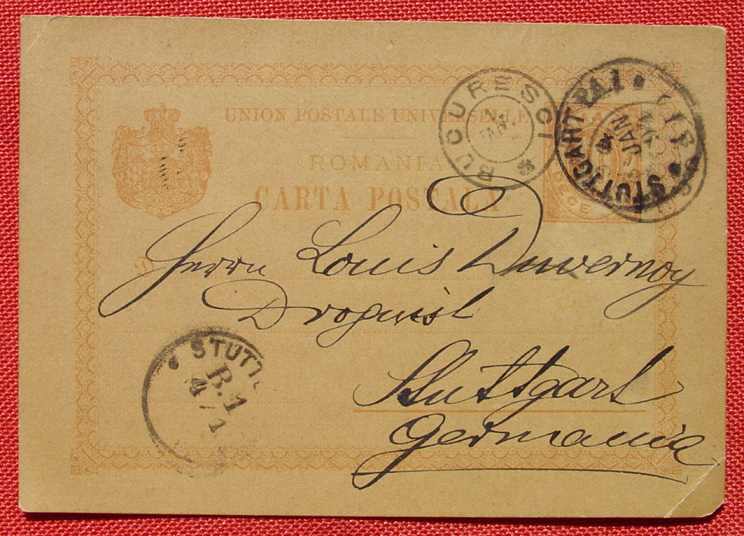 UNION POSTALE UNIVERSELLE
ROMANIA
CARTA POSTALA
BUCURESCI
STUTTGART
JAN
Herrn Louis Duvernoy
Droguist
Stuttgart
Germania
STUTT
B.1
4/1